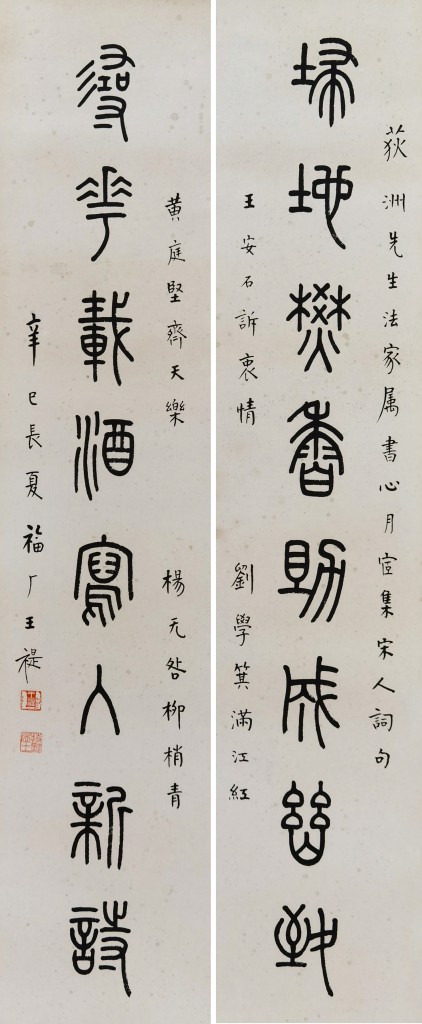 荻洲先生法家属書心月宧集宋人詞句
埽地燓香助成幽致
王安石訴衷情 劉學箕滿江紅
黃庭堅齊天樂 楊无咎柳梢青
尋花載酒寫入新詩
辛巳長夏福厂王禔